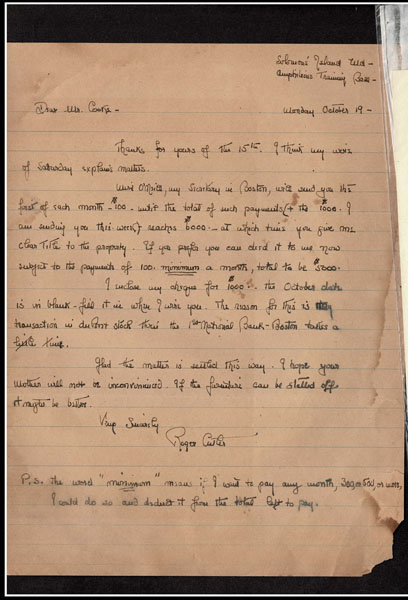 Solomons Island Md -
Amphibious Training Base -
Dear Mr. - Monday October 19 -
Thanks for yours of the 15th. I think my wire
of Saturday explains matters.
Miss my Secretary in Boston, will send you the
first of each month - $100 - until the total of such payments (+ the $1000. I
am sending you this week) reaches $6000 - at which time you give me
clear title to the property. If you prefer you can deed it to me now
subject to the payments of 100. minimum a month, total to be $5000.
I enclose my cheque for 1000 - the October date
is in blank - fill it in when I wire you. The reason for this is
transaction in stock thru the 1st National Bank - Boston takes a
little time.
Glad the matter is settled this way. I hope your
Mother will not be inconvenienced. If the furniture can be off
it might be better.
Very Sincerely
Roger
P.S. the word "minimum" means if I want to pay any month, 200, or 500, or more,
I could do so and deduct it from the total left to pay.